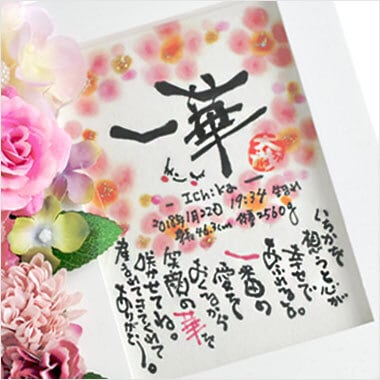 一華
- Ichika -
2018年1月22日 19:34 生まれ
身長 46.3cm 体重 2560g
いちかを
想うと心が
幸せで
あふれるよ。
一番の
愛を
おくるから
笑顔の華を
咲かせてね。
産まれてきてくれて
ありがとう。